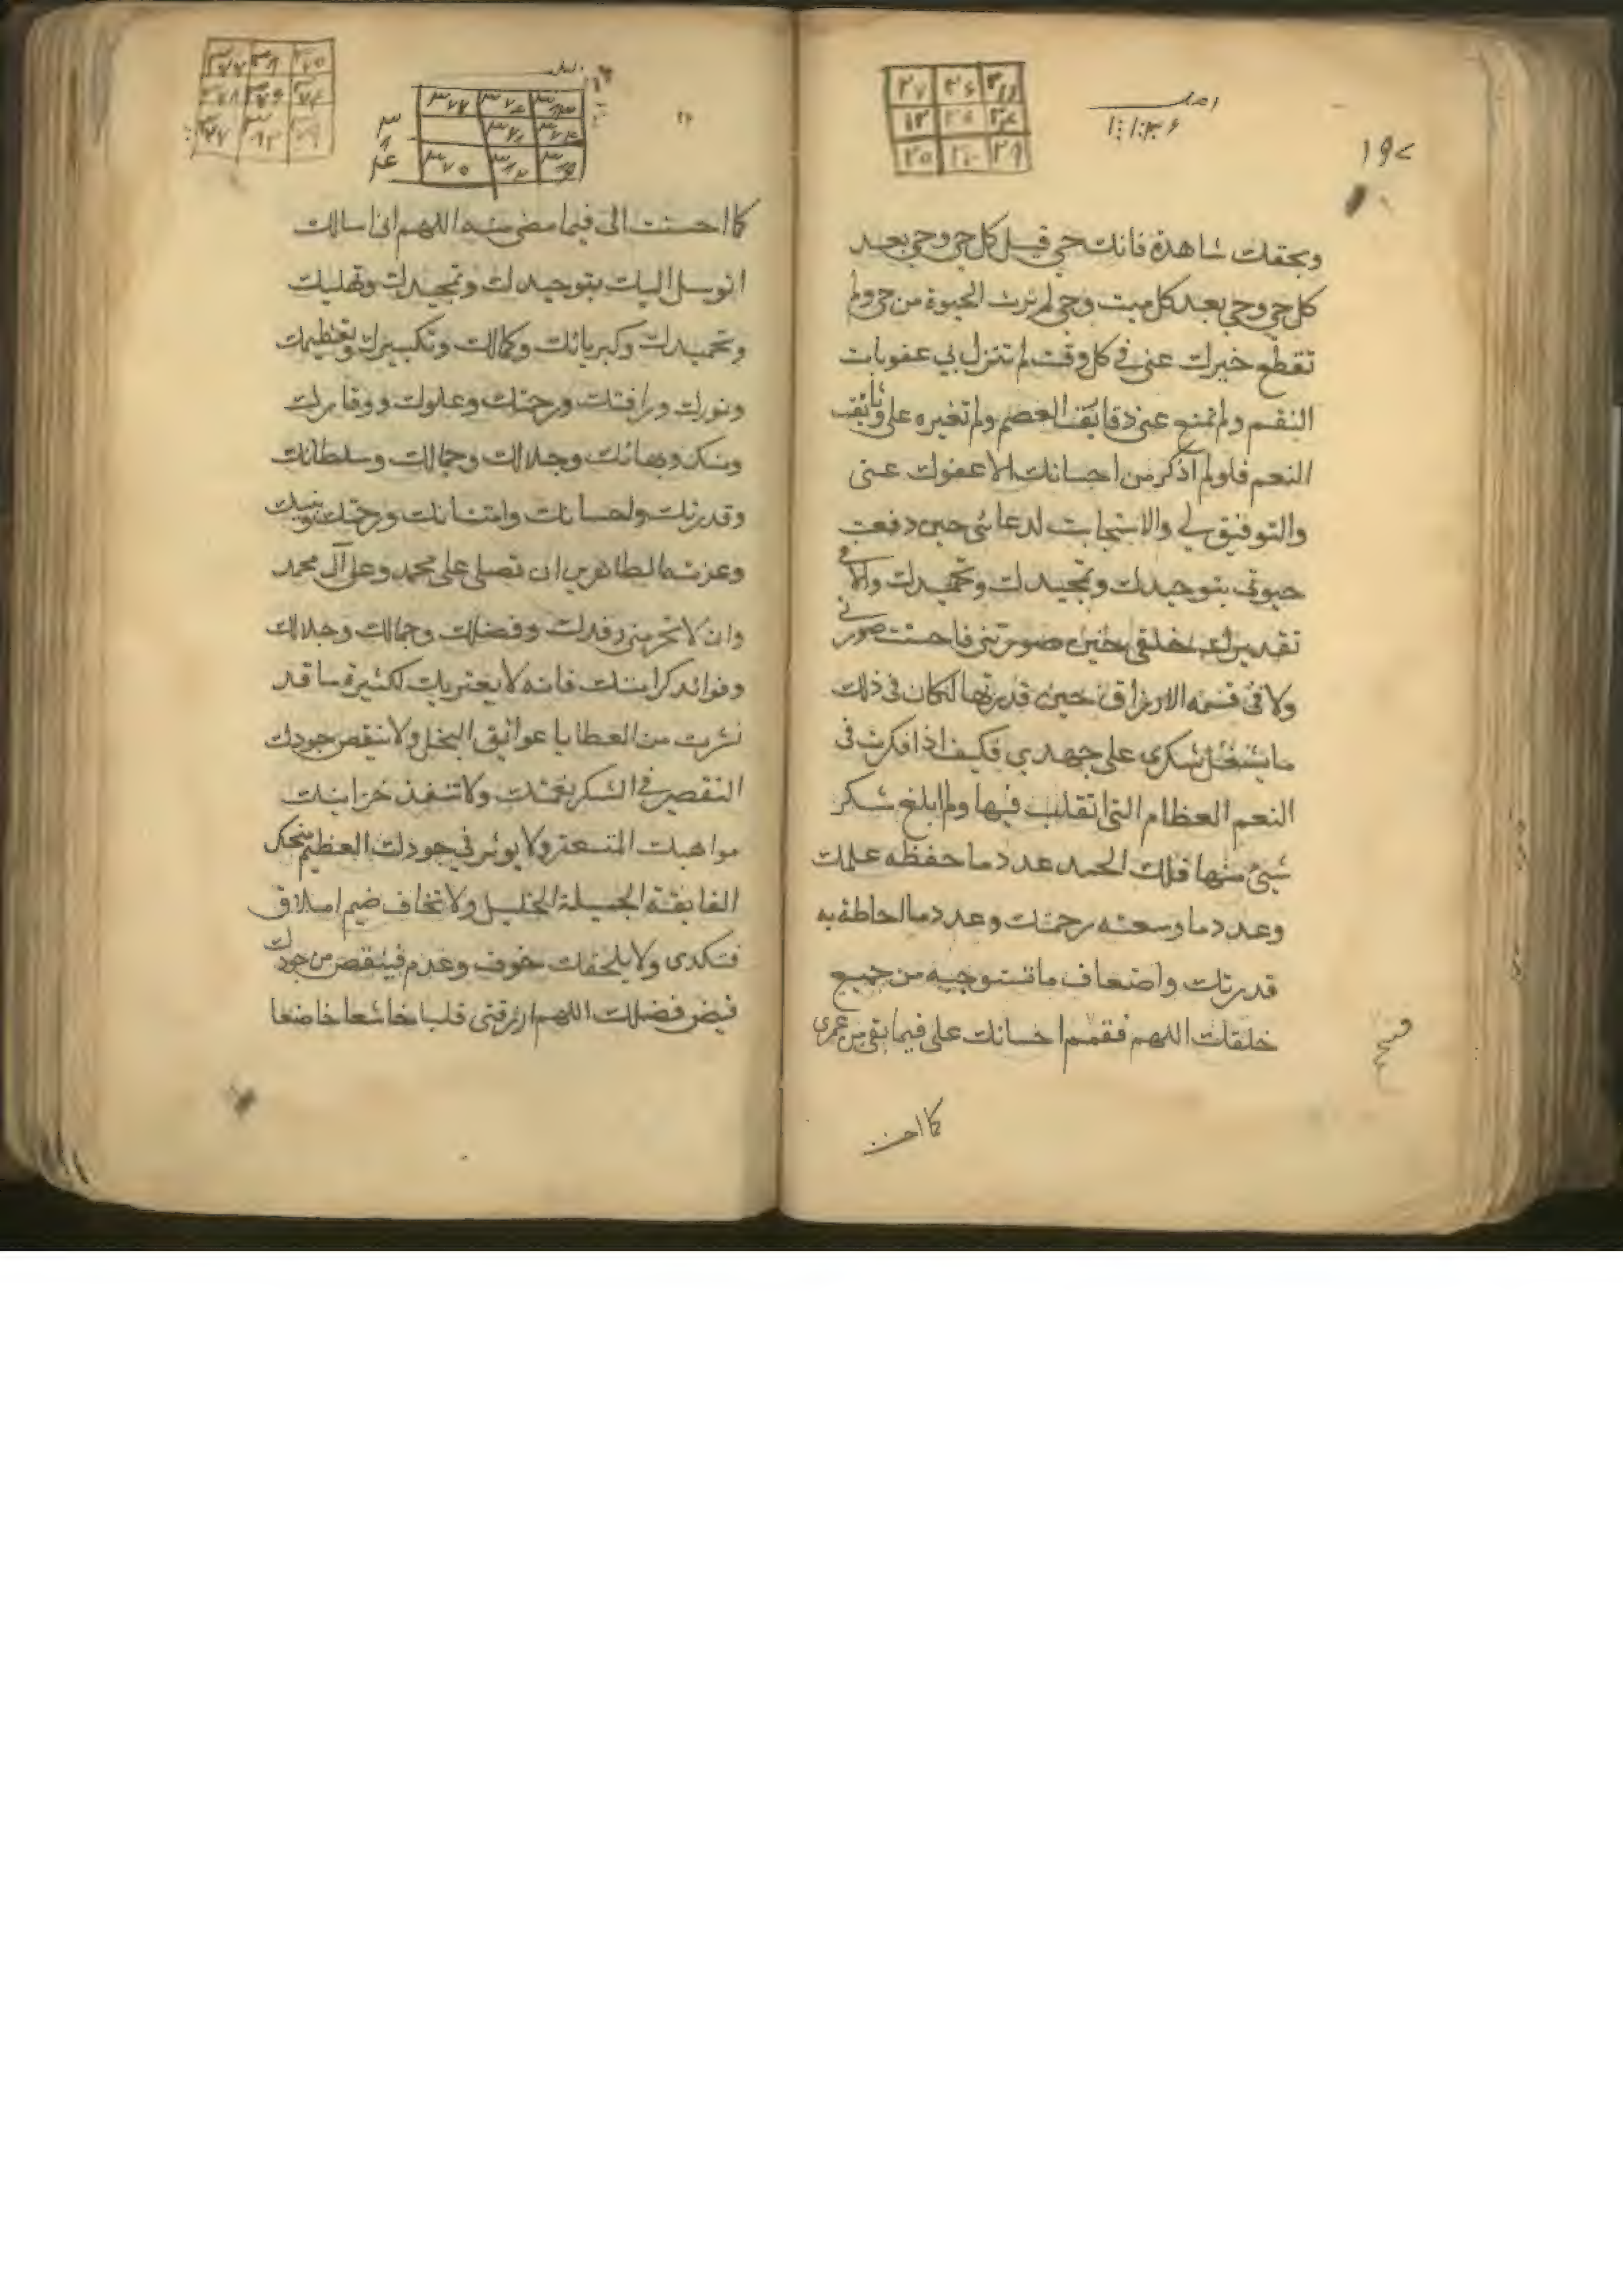 ۱۹۲
وبحقك شاهدة فانك حي قبل كل حي وحي بعد
كل حي وحي بعد كل ميت وحي لم ترث الحيوة من حي ولم
تقطع خيرك عني في كل وقت لم تنزل بي عقوبات
النقم ولم تمنع عني دقايق العصم ولم تغيره علي وثايق
النعم فلو لم اذكر من احسانك الا عفوك عني
والتوفيق لي والاستجابت لدعائي حين دفعت
صوتي بتوحيدك وتمجيدك وتحميدك والا في
تقديرك خلقي حين صورتني فاحسنت صورتي
ولا في قسمه الارزاق حين قدرتها لكان في ذلك
ما يشغل شكري علي جهدي فكيف اذا فكرت في
النعم العظام التي اتقلب فيها ولم ابلغ شكر
شيئ منها فلك الحمد عدد ما حفظه علمك
وعدد ما وسعته رحمتك وعدد ما احاطة به
قدرتك واضعاف ما تستوجبه من جميع
خلقك اللهم فقمم احسانك علي فيما بقي من عمري
كما احسنت
كما احسنت الي فيما مضي منه اللهم اني اسالك
اتوسل اليك بتوحيدك وتمجيدك وتهليلك
وتحميدك وكبريائك وكمالك وتكبيرك وتعظيمك
ونورك ورافتك ورحمتك وعلوك ووقارك
ومنك وبهائك وجلالك وجمالك وسلطانك
وقدرتك واحسانك وامتنانك ورحمتك ونبيك
وعزته الطاهرين ان تصلي علي محمد وعلي آل محمد
وان لا تحرمني رفدك وفضلك وجمالك وجلالك
وفوائد كرامتك فانه لا يعتريك لكثيرة ما قد
نشرت من العطايا عوائق البخل ولا ينقص جودك
التقصير في الشكر نعمتك ولا تنفذ خزاينك
مواهبك المتسعة ولا يوثر في جودك العظيم منحك
الفايقة الجميلة الجليل ولا تخاف ضيم املاق
فتكدي ولا يلحقك خوف وعدم فينقص من جودك
فيض فضلك اللهم ارزقني قلبا خاشعا خاضعا